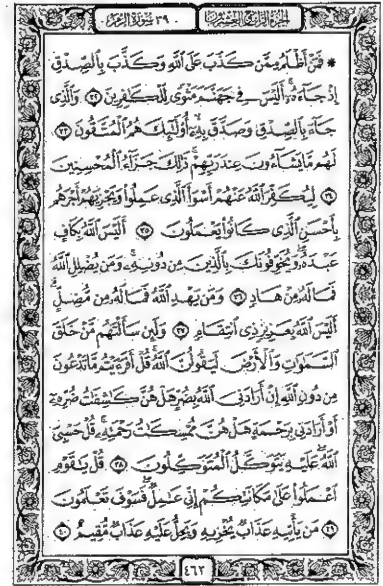 الجزء الرابع والعشرون ٣٩ سورة الزمر
* فَمَنْ أَظْلَمُ مِمَّن كَذَبَ عَلَى ٱللَّهِ وَكَذَّبَ بِٱلصِّدْقِ
إِذْ جَآءَهُۥٓ أَلَيْسَ فِى جَهَنَّمَ مَثْوًى لِّلْكَٰفِرِينَ ٣٢ وَٱلَّذِى
جَآءَ بِٱلصِّدْقِ وَصَدَّقَ بِهِۦٓ أُو۟لَٰٓئِكَ هُمُ ٱلْمُتَّقُونَ ٣٣
لَهُم مَّا يَشَآءُونَ عِندَ رَبِّهِمْ ذَٰلِكَ جَزَآءُ ٱلْمُحْسِنِينَ
٣٤ لِيُكَفِّرَ ٱللَّهُ عَنْهُمْ أَسْوَأَ ٱلَّذِى عَمِلُوا۟ وَيَجْزِيَهُمْ أَجْرَهُم
بِأَحْسَنِ ٱلَّذِى كَانُوا۟ يَعْمَلُونَ ٣٥ أَلَيْسَ ٱللَّهُ بِكَافٍ
عَبْدَهُۥ وَيُخَوِّفُونَكَ بِٱلَّذِينَ مِن دُونِهِۦ وَمَن يُضْلِلِ ٱللَّهُ
فَمَا لَهُۥ مِنْ هَادٍ ٣٦ وَمَن يَهْدِ ٱللَّهُ فَمَا لَهُۥ مِن مُّضِلٍّ
أَلَيْسَ ٱللَّهُ بِعَزِيزٍ ذِى ٱنتِقَامٍ ٣٧ وَلَئِن سَأَلْتَهُم مَّنْ خَلَقَ
ٱلسَّمَٰوَٰتِ وَٱلْأَرْضَ لَيَقُولُنَّ ٱللَّهُ قُلْ أَفَرَءَيْتُم مَّا تَدْعُونَ
مِن دُونِ ٱللَّهِ إِنْ أَرَادَنِىَ ٱللَّهُ بِضُرٍّ هَلْ هُنَّ كَٰشِفَٰتُ ضُرِّهِۦٓ
أَوْ أَرَادَنِى بِرَحْمَةٍ هَلْ هُنَّ مُمْسِكَٰتُ رَحْمَتِهِۦ قُلْ حَسْبِىَ
ٱللَّهُ عَلَيْهِ يَتَوَكَّلُ ٱلْمُتَوَكِّلُونَ ٣٨ قُلْ يَٰقَوْمِ
ٱعْمَلُوا۟ عَلَىٰ مَكَانَتِكُمْ إِنِّى عَٰمِلٌ فَسَوْفَ تَعْلَمُونَ
٣٩ مَن يَأْتِيهِ عَذَابٌ يُخْزِيهِ وَيَحِلُّ عَلَيْهِ عَذَابٌ مُّقِيمٌ ٤٠
٤٦٢